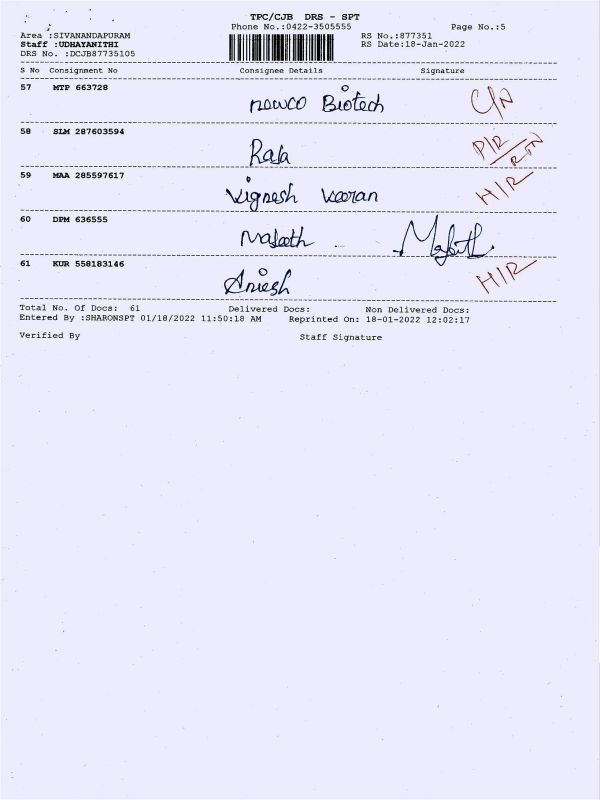 TPC/CJB DRS - SPT
Phone No.:0422-3505555 Page No.:5
Area :SIVANANDAPURAM RS No.:877351
Staff :UDHAYANITHI RS Date:18-Jan-2022
DRS No. :DCJB87735105
S No Consignment No Consignee Details Signature
57 MTP 663728
nowco Biotech C/N
58 SLM 287603594
Raja P/R
59 MAA 285597617
Vignesh H/R
60 DPM 636555
61 KUR 558183146
H/R
Total No. Of Docs: 61 Delivered Docs: Non Delivered Docs:
Entered By :SHARONSPT 01/18/2022 11:50:18 AM Reprinted On: 18-01-2022 12:02:17
Verified By Staff Signature